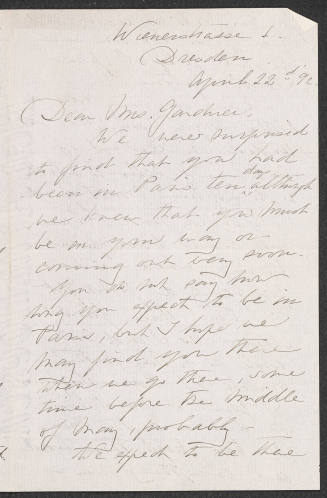 Wienerstrasse 1.
Dresden
April 22d '92
Dear Mrs. Gardner.
We were surprised
to find that you had
been in Paris ten days, although
we knew that you must
be on your way or
coming out very soon.
You do not say how
long you expect to be in
Paris, but I hope we
may find you there
when we go there, some
time before the middle
of May, probably —
We expect to be there